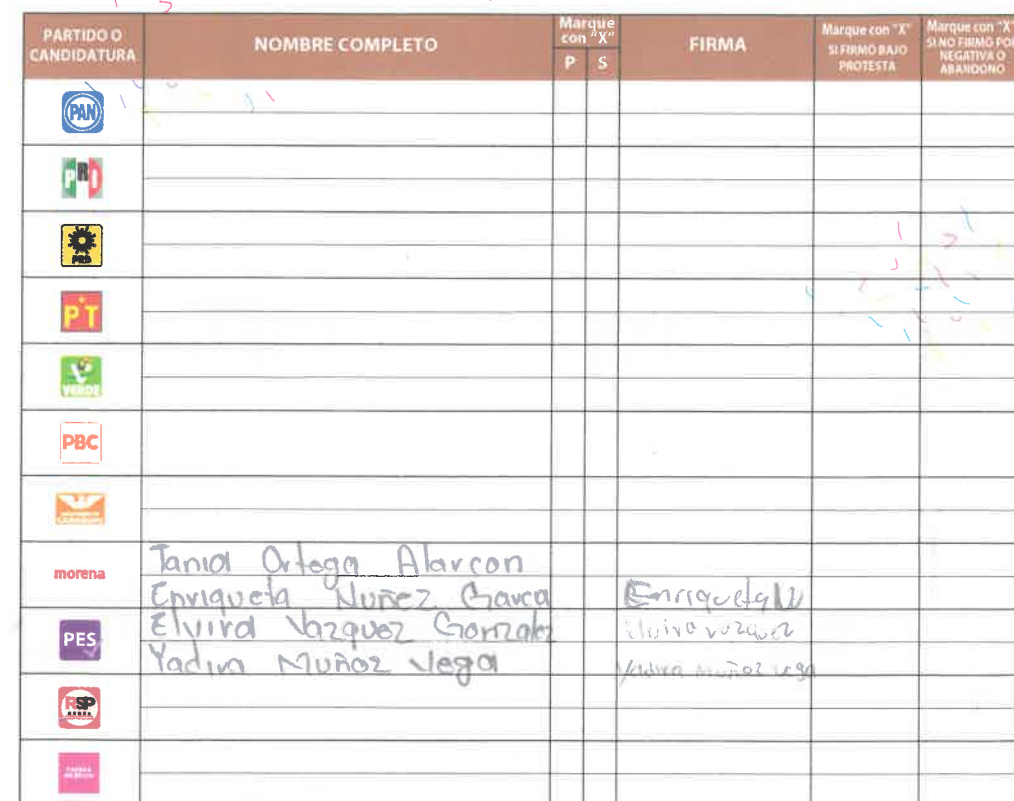 PARTIDO O CANDIDATURA
NOMBRE COMPLETO
Marque con "X"
P S
FIRMA
Marque con "X" SI FIRMÓ BAJO PROTESTA
Marque con "X" SI NO FIRMÓ POR NEGATIVA O ABANDONO
PAN
PRI
PRD
PT
VERDE
PBC
morena
Tania Ortega Alarcon
Enriqueta Nuñez Garca
Enriqueta N
PES
Elvira Vazquez Gonzalez
Elvira vazquez
Yadira Muñoz Vega
Yadira Muñoz Vega
RSP